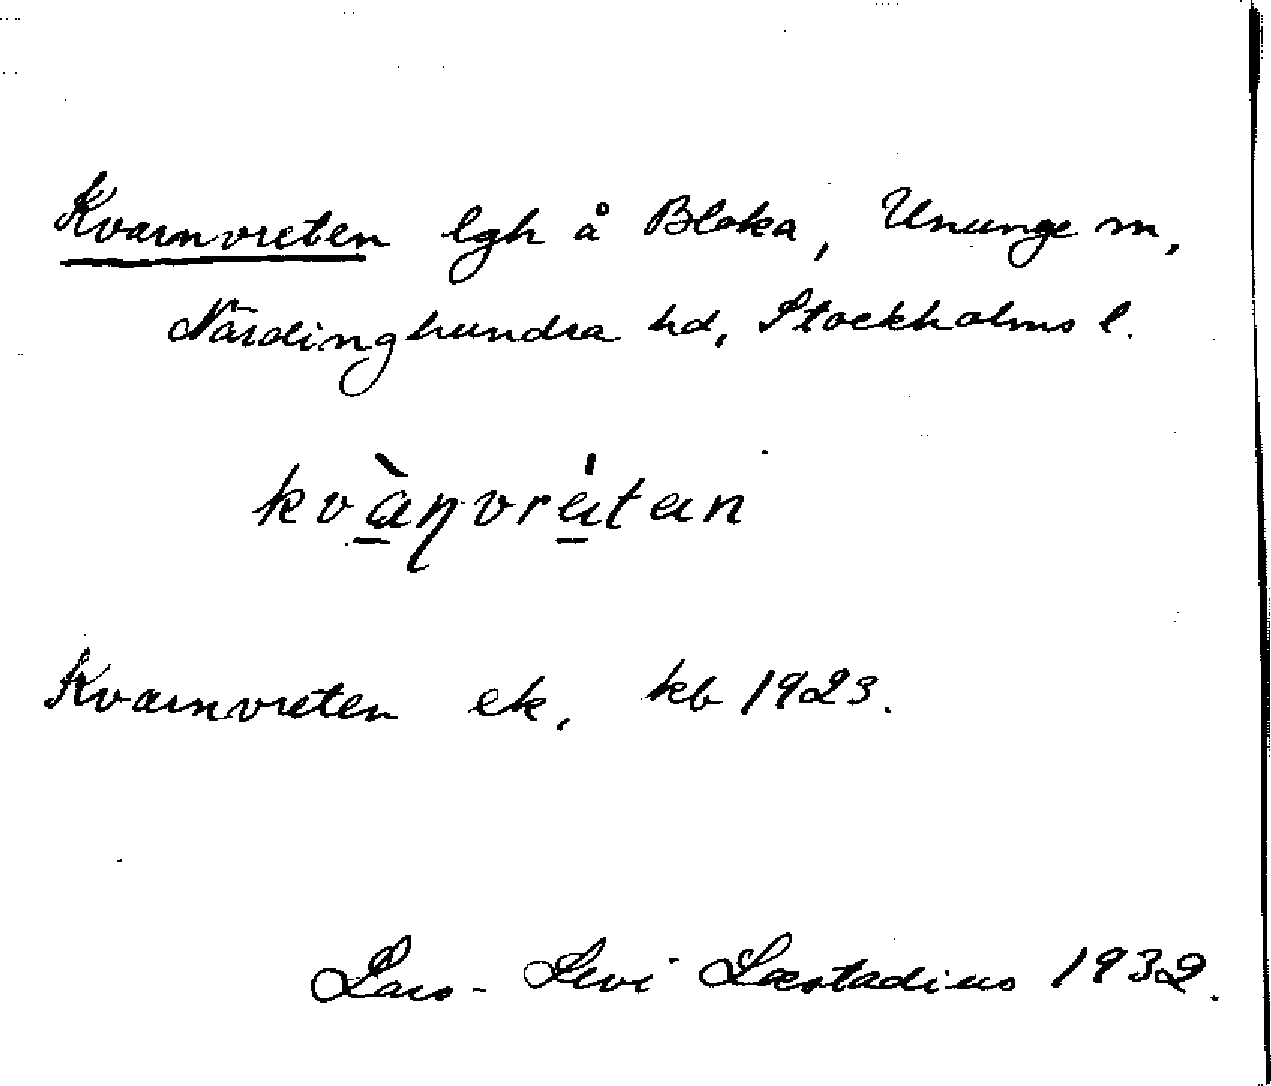 Kvarnvreten lgh å Bloka, Ununge sn,
Närdinghundra hd, Stockholms l.
kvа̀ɳvrátan
Kvarnvreten ek. kb 1923.
Lars-Levi Læstadius 1932.